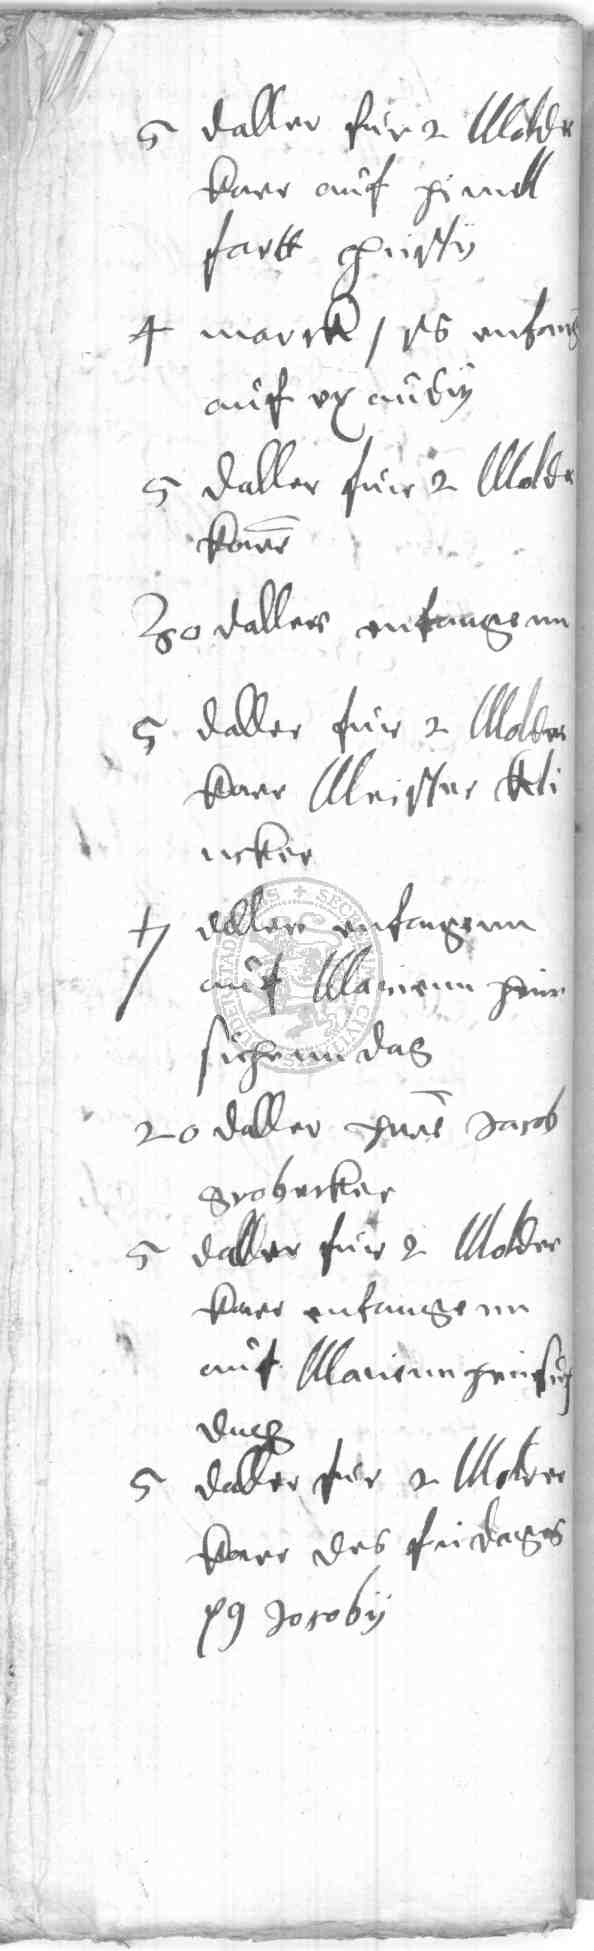 5 daller für 2 Molder
karr auf himell
fartt christy
4 marck / entfang
auf exaudy
5 daller für 2 Molder
karr
30 daller entfangenn
5 daller für 2 Molder
karr Meister kli
ncker
7 daller entfangenn
auf Marienn heim
suchenn dag
20 daller Jacob
grobecker
5 daller für 2 Molder
karr entfangenn
auf Marienn heimsuch
dach
5 daller für 2 Molder
karr des fridages
Jacoby